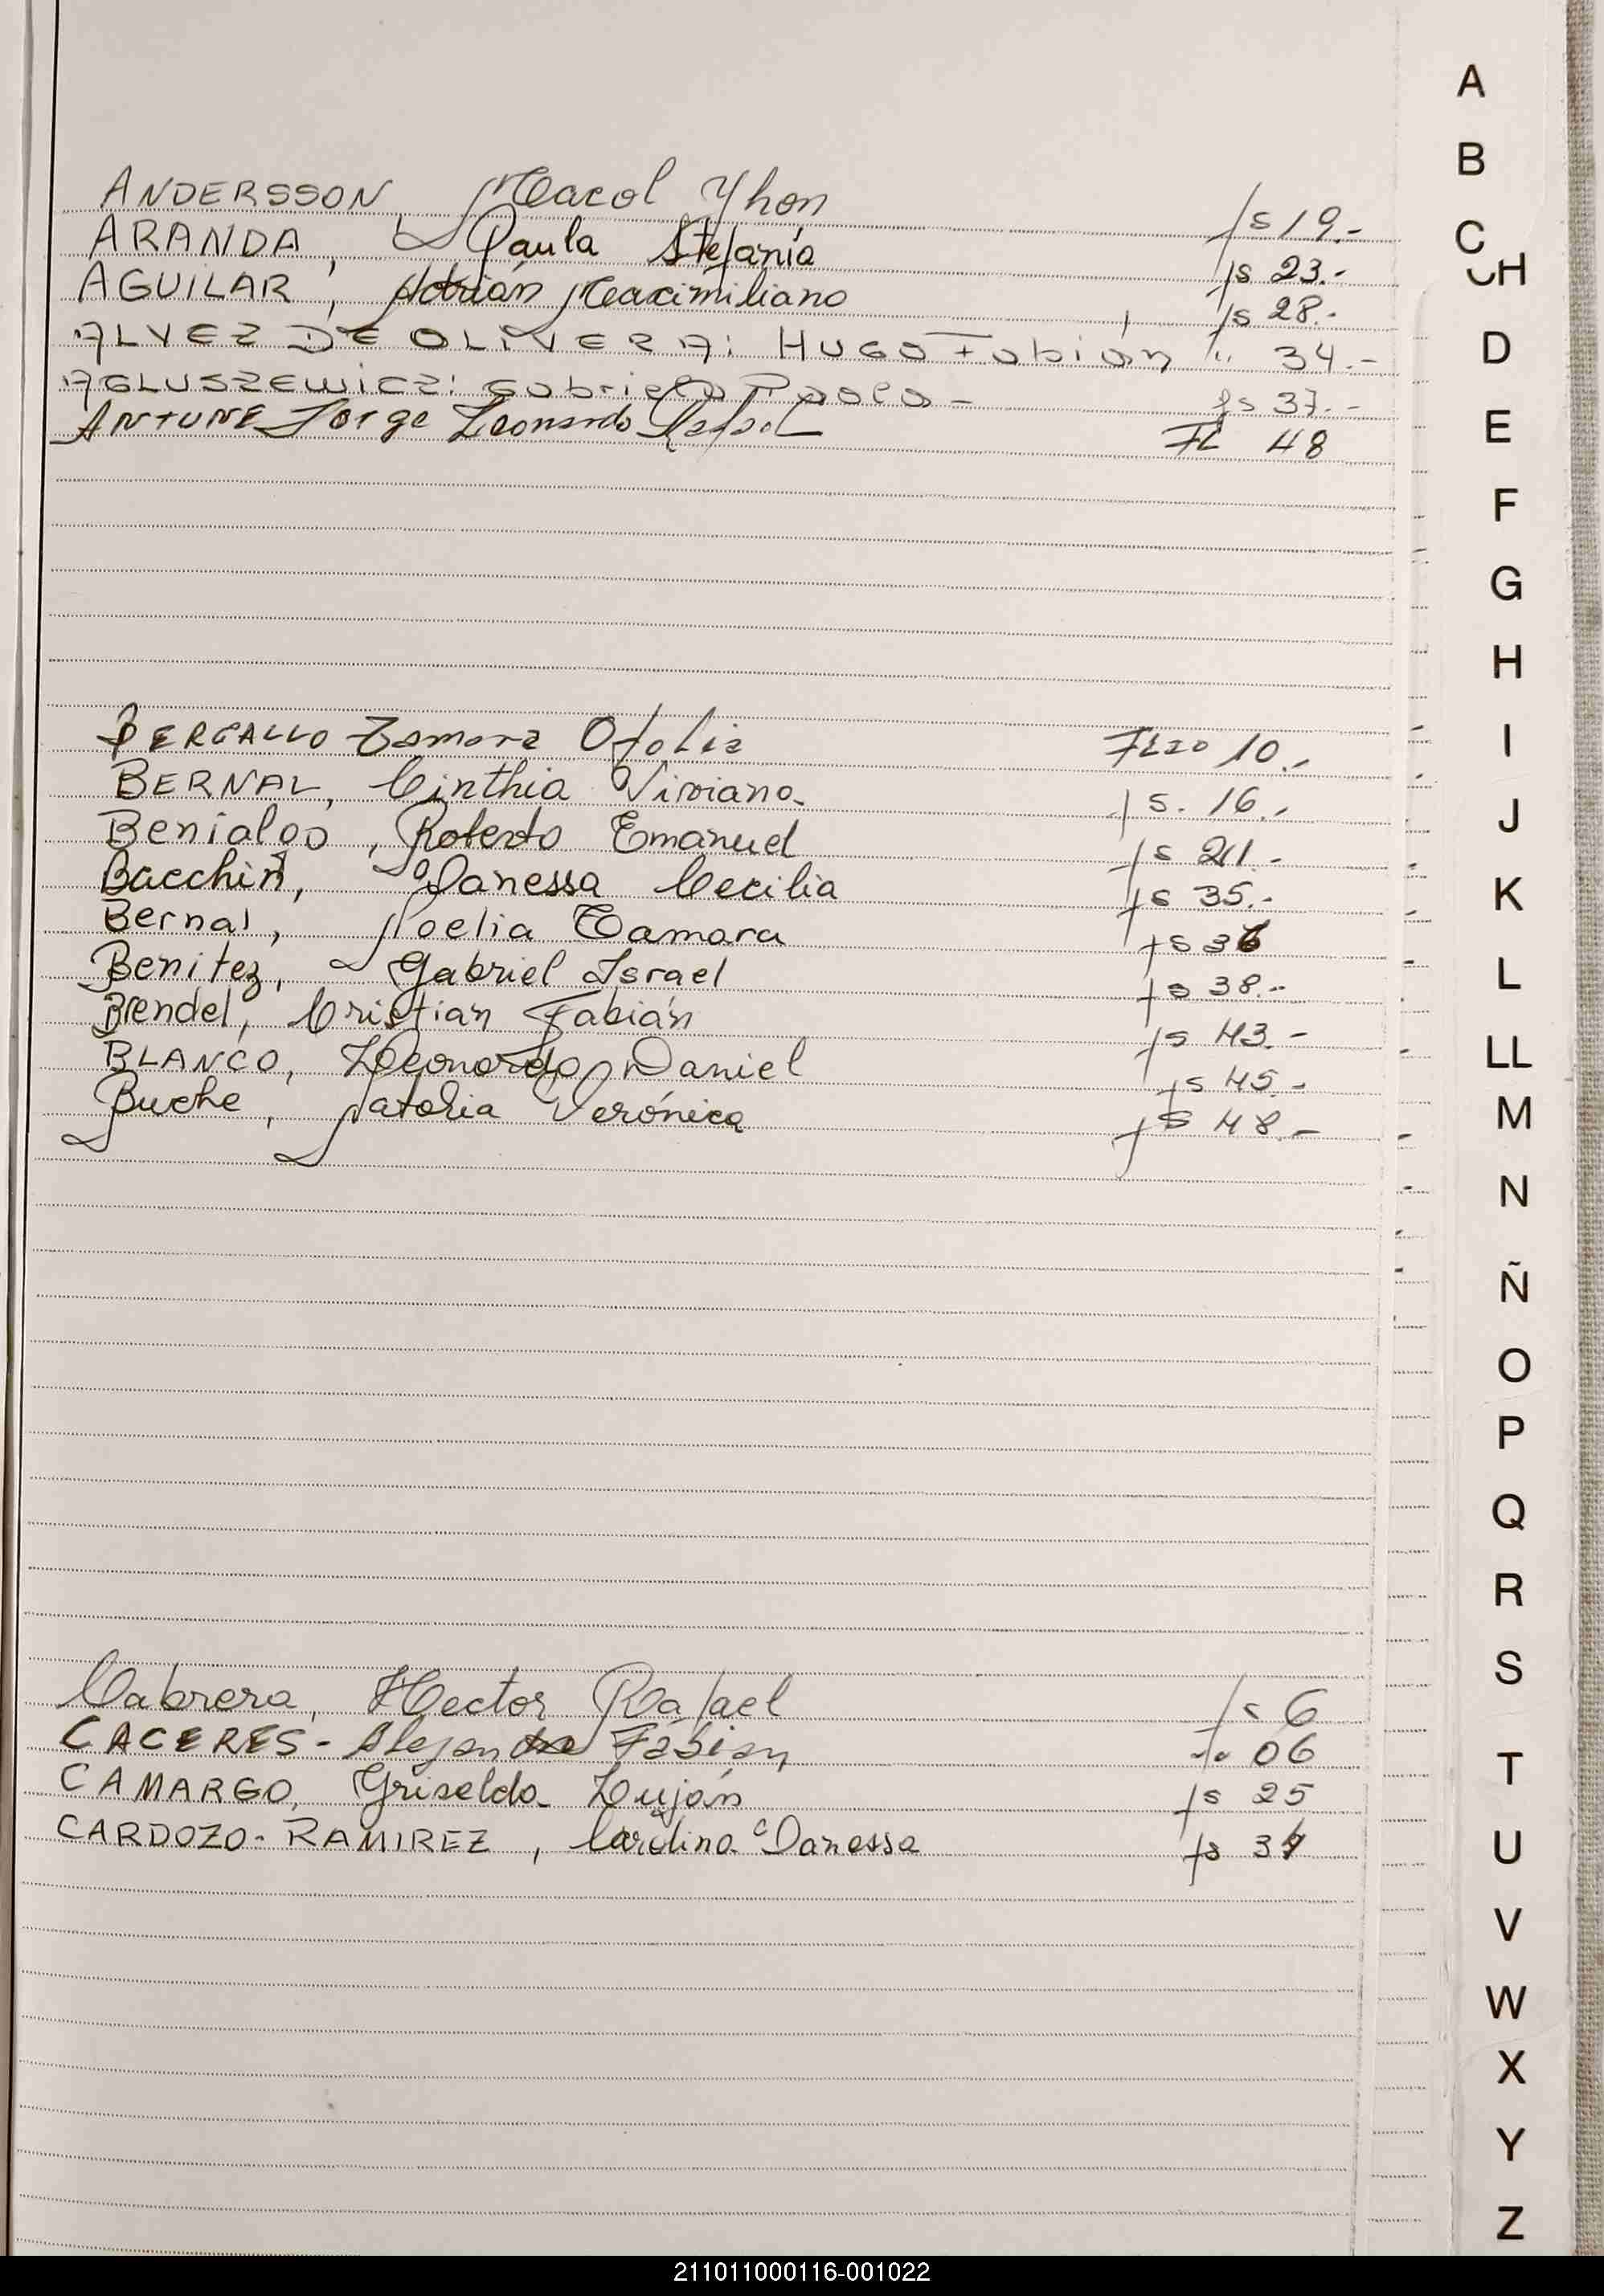 ANDERSSON, Macol Yhon fs 19.-
ARANDA, Paula Stefanía fs 23.-
AGUILAR, Adrián Maximiliano fs 28.-
ALVEZ DE OLIVERA: HUGO Fabián " 34-
AGLUSZEWICZ: Gabriela Paola- fs 37.-
ANTUNE Jorge Leonardo Rafael FL 48
BERGALLO Tamara Ofelia FLio 10.-
BERNAL, Cinthia Viviana. fs. 16.-
Benialgo, Roberto Emanuel fs 21.-
Bacchin, Vanessa Cecilia fs 35.-
Bernal, Noelia Tamara fs 36
Benitez, Gabriel Israel fs 38.-
Brendel, Cristian Fabián fs 43.-
BLANCO, Leonardo Daniel fs 45.-
Buche, Natalia Verónica fs 48.-
Cabrera, Hector Rafael fs 6
CACERES - Fabian 06
CAMARGO, Griselda Luján fs 25
CARDOZO - RAMIREZ, Carolina Vanessa fs
A
B
C
CH
D
E
F
G
H
I
J
K
L
LL
M
N
Ñ
O
P
Q
R
S
T
U
V
W
X
Y
Z
211011000116-001022